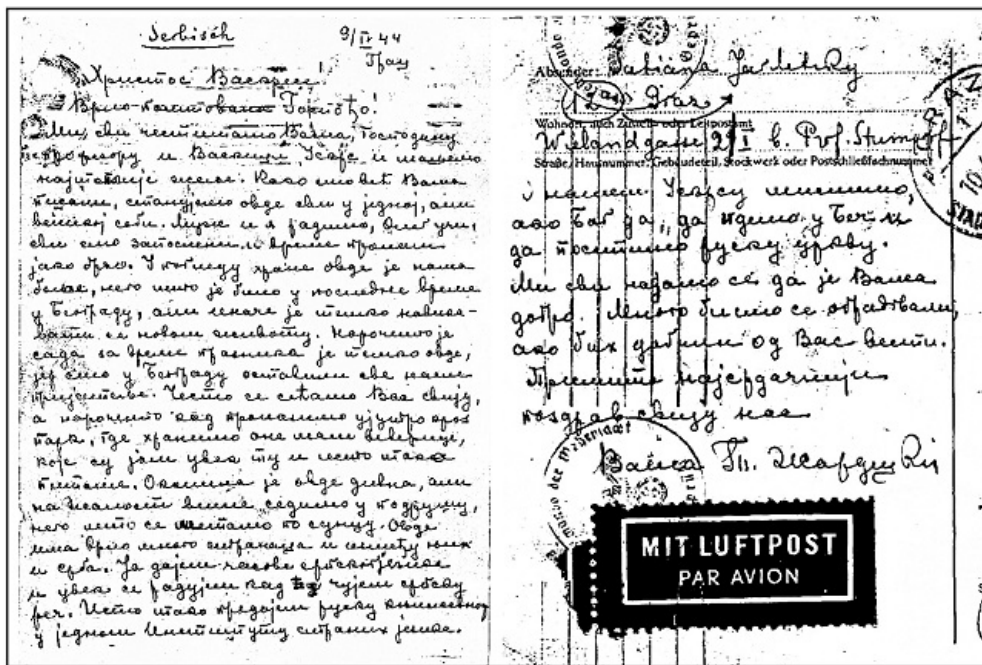 Serbisch
9/IV 44
Грац
Христос Васкрсе!
Врло поштована Госпођо!
Ми сви честитамо Вама, Господину
Професору и Васкрс и шаљемо
најтоплије жеље. Како смо већ Вама
писали, станујемо овде сви у једној, али
великој соби. Муж и я радимо, учи,
сви смо запослени и време пролази
јако брзо. У погледу хране овде је нама
боље, него што је било у последње време
у Београду, али иначе је тешко навика-
вати се новом животу. Нарочито је
сада за време празника је тешко овде,
јер смо у Београду оставили све наше
пријатеље. Често се сећамо Вас свију,
а нарочито кад пролазимо ујутро кроз
парк, где хранимо оне мале веверице,
које су још увек ту и исто тако
питоме. Околина је овде дивна, али
на жалост више седимо у подруму,
него што се шетамо по сунцу. Овде
има врло много странаца и између њих
и срба. Ја дајем часове српског језика
и увек се радујем кад чујем српску
реч. Исто тако предајем руску књижевност
у једном Институту страних језика.
Absender: Tatiana Jardetzky
12 Graz
Wohnort, auch Zustell- oder Leitpostamt
Wielandgasse 2/I b. Prof. Stumpf
Straße, Hausnummer, Gebäudeteil, Stockwerk oder Postschließfachnummer
мислимо,
ако Бог да, да идемо у Беч и
да посетимо руску цркву.
Ми сви надамо се да је Вама
добро. Много бисмо се обрадовали,
ако бих добили од Вас вести.
Примите најсрдачнији
поздрав свију нас
Ваша Т. Жардецки
MIT LUFTPOST
PAR AVION